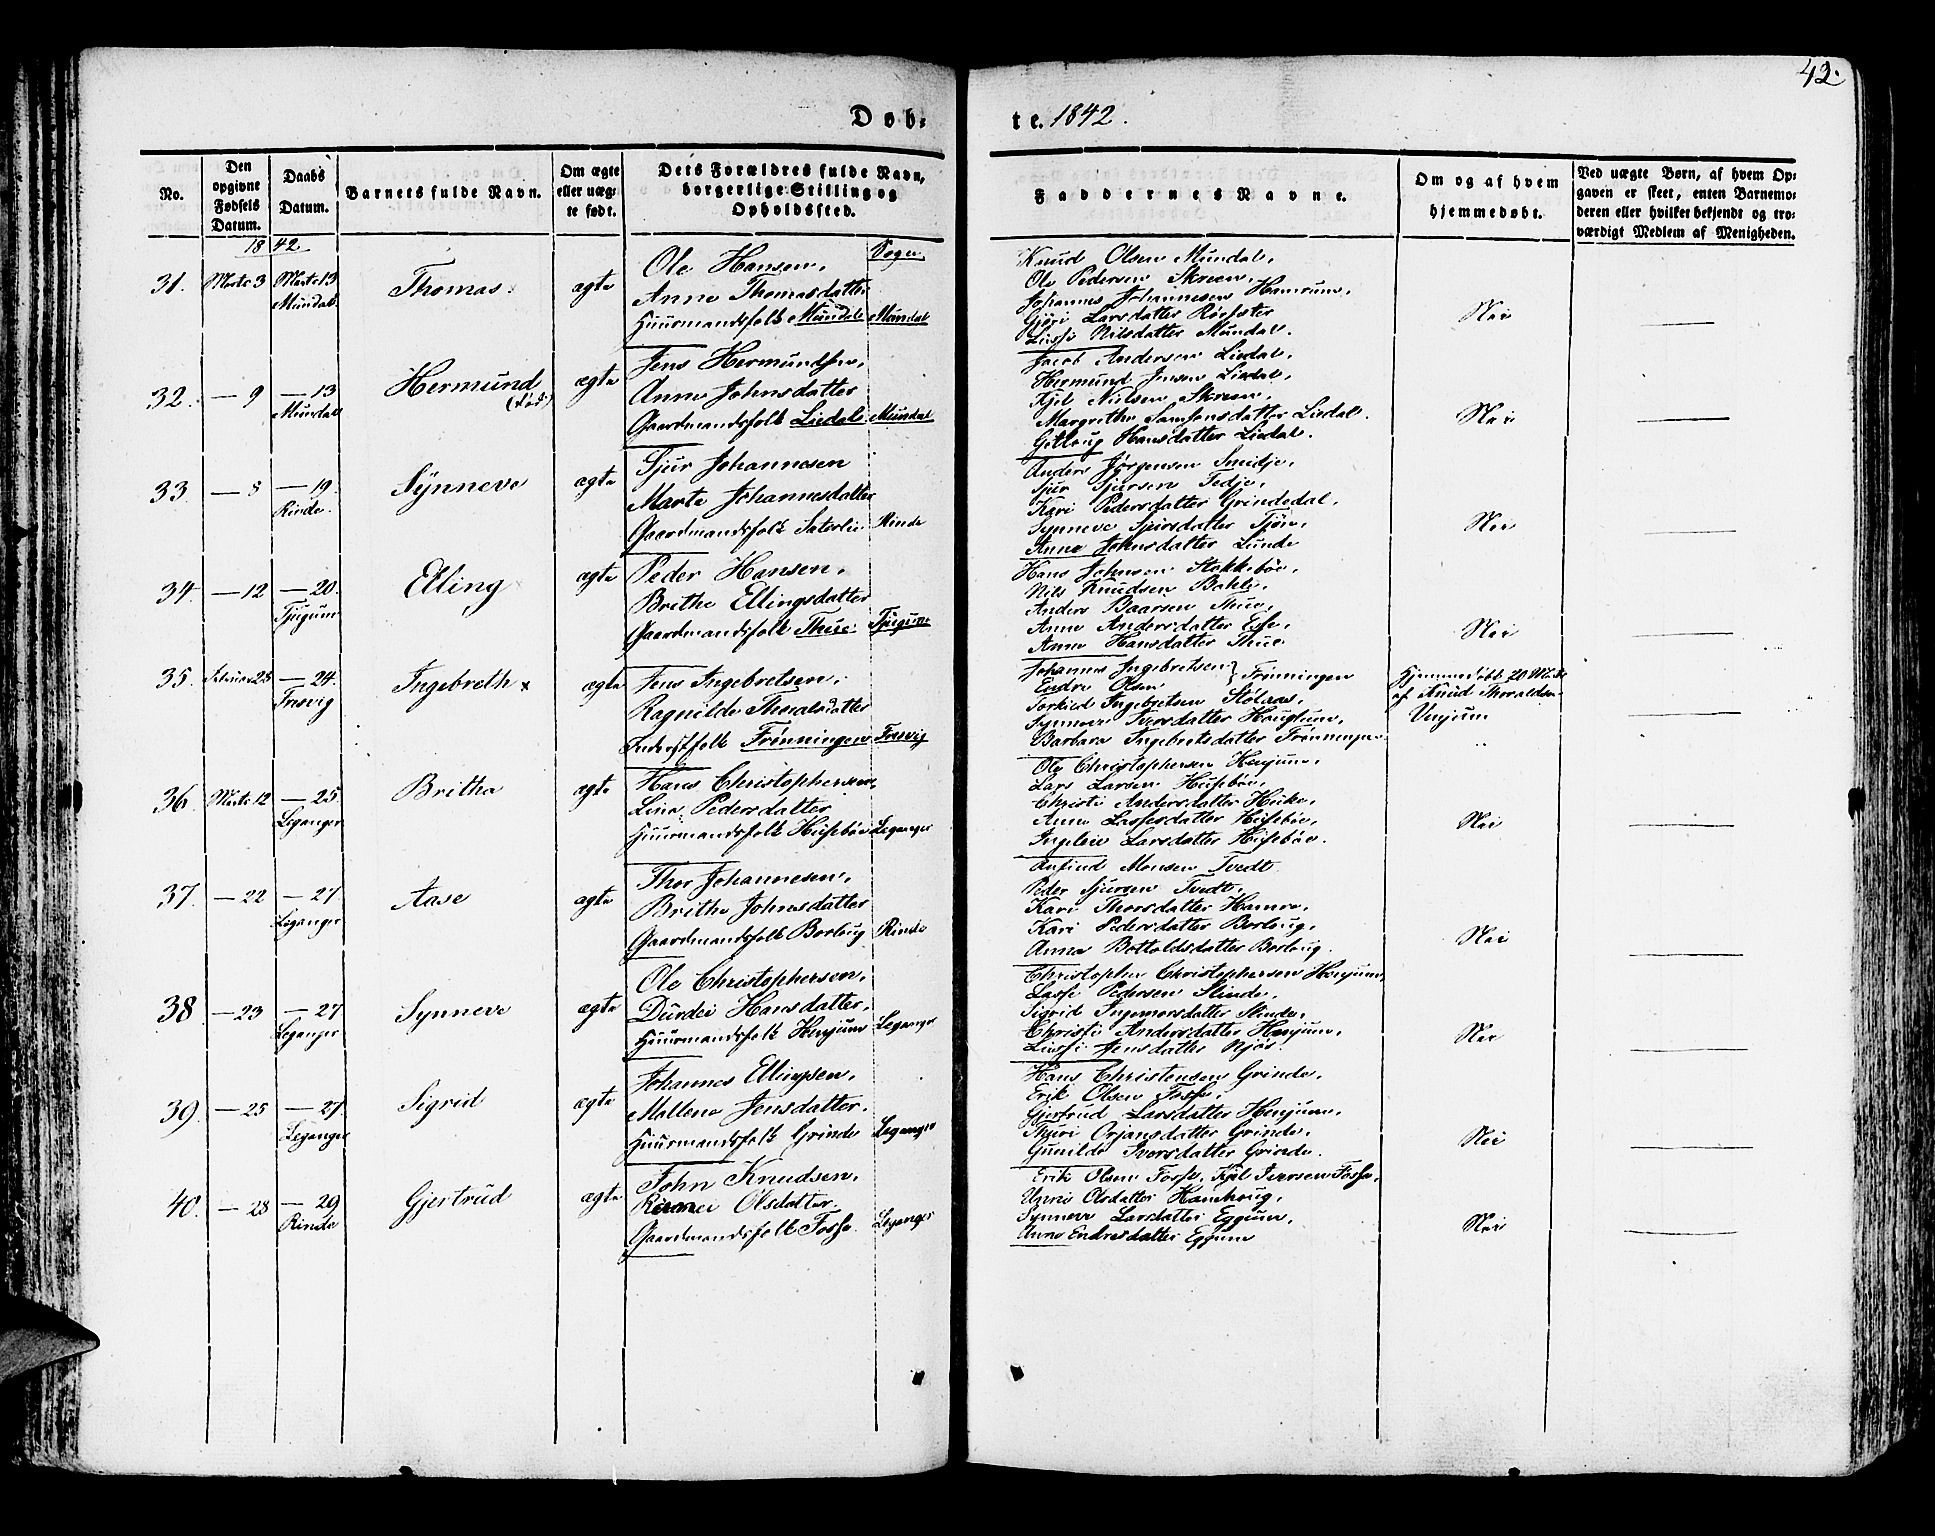 42.
Døb-
te. 1842.
No.
Den opgivne Fødsels Datum.
Daabs Datum.
Barnets fulde Navn.
Om ægte eller uægte født.
Dets Forældres fulde Navn, borgerlige Stilling og Opholdssted.
Faddernes Navne.
Om og af hvem hjemmedøbt.
Ved uægte Børn, af hvem Opgaven er skeet, enten Barnemoderen eller hvilket bekjendt og troværdigt Medlem af Menigheden.
1842
Sogn
31. Marts 3 Marts 13 Mundal
Thomas.
ægte
Ole Hansen,
Anne Thomasdatter
Huusmandsfolk Mundal Mundal
Knud Olsen Mundal,
Ole Pedersen Skreen,
Johannes Johannesen Hamrum,
Gjöri Larsdatter
Lussi Nilsdatter Mundal.
Nei
32. — 9 — 13 Mundal
Hermund
(død)
ægte
Jens Hermundsen,
Anne Johnsdatter
Gaardmandsfolk Liedal Mundal
Jacob Andersen Liedal,
Hermund Jensen Liedal,
Kjel Nielsen Skreen,
Margrethe Samsonsdatter Liedal.
Hansdatter Liedal.
Nei
33. — 8 — 19. Rinde.
Synneve
ægte
Sjur Johannesen
Marte Johannesdatter
Gaardmandsfolk Saterlie Rinde
Anders Jörgensen Smidje,
Sjur Sjursen Tedje,
Kari Pedersdatter Grindedal,
Synneve Sjursdatter Tjön,
Anne Johnsdatter Lunde
Nei
34. — 12 — 20. Tjugum
Elling
ægte
Peder Hansen,
Brithe Ellingsdatter
Gaardmandsfolk Thue. Tjugum
Hans Johnsen Stokkebøe,
Nils Knudsen Bahle,
Anders Baarsen Thue,
Anne Andersdatter Esse,
Anne Hansdatter Thue
Nei
35. Februar 23 — 24. Fresvig
Ingebreth x
ægte
Jens Ingebretsen,
Ragnilde Thoralsdatter
Inderstfolk Frønningen Fresvig
Johannes Ingebretsen } Frønningen
Endre Olsen
Torkied Ingebretsen Stølaas,
Synneve Iversdatter Hauglum,
Barbara Ingebretsdatter Frønningen
Hjemmedøbt 20 Marts
af Knud Thoraldsen
Unjum
36. Marts 12 — 25. Leganger
Britha
ægte
Hans Christophersen,
Lina Pedersdatter
Huusmandsfolk Husebøe Leganger
Ole Christophersen Henjum,
Lars Larsen Husebøe,
Christi Andersdatter Heike,
Anne Lassesdatter Husebøe,
Ingeleiv Larsdatter Husebøe.
Nei
37. — 22 — 27. Leganger
Aase
ægte
Thor Johannesen,
Brithe Johnsdatter
Gaardmandsfolk Borloug Rinde
Arfind Monsen Tvedt
Peder Sjursen Tvedt,
Kari Thorsdatter Hamre,
Kari Pedersdatter Borloug,
Anna Botholdsdatter Borloug.
Nei
38 — 23 — 27 Leganger
Synneve
ægte
Ole Christophersen,
Durdei Hansdatter,
Huusmandsfolk Henjum Leganger
Christopher Christophersen Henjum,
Lasse Pedersen Slinde,
Sigrid Ingemorsdatter Slinde,
Christi Andersdatter Henjum,
Lussi Jensdatter Njøs.
Nei
39. — 25 — 27 Leganger
Sigrid
ægte
Johannes Ellingsen,
Mallene Jensdatter,
Huusmandsfolk Grinde Leganger
Hans Christensen Grinde,
Erik Olsen Fosse,
Gjertrud Larsdatter Henjum,
Thuri Orjansdatter Grinde,
Gunilde Iversdatter Grinde.
Nei
40. — 28 — 29 Rinde
Gjertrud
ægte
John Knudsen,
Olsdatter
Gaardmandsfolk Fosse. Leganger
Erik Olsen Fosse, Kjel Iversen Fosse,
Unni Olsdatter Hamhoug,
Synneve Larsdatter Eggum,
Anne Endresdatter Eggum
Nei